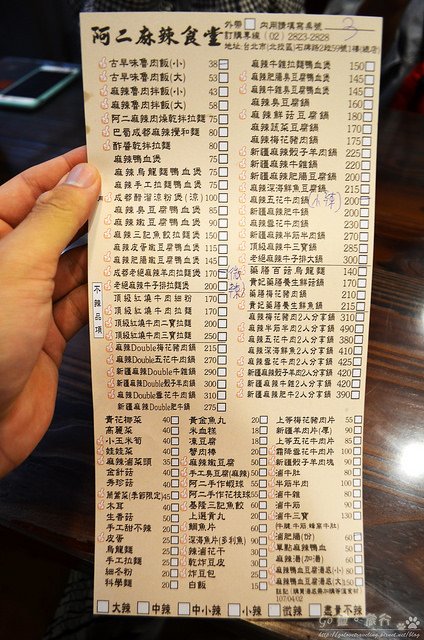 阿二麻辣食堂
外帶 內用請填寫桌號 3
訂購專線 (02) 2823-2828
地址:台北市(北投區)石牌路2段59號1樓(總店)
古早味魯肉飯(小) 38
古早味魯肉飯(大) 53
麻辣魯肉拌飯(小) 43
麻辣魯肉拌飯(大) 58
阿二麻辣肉燥乾拌拉麵 75
巴蜀成都麻辣攪和麵 80
酢醬乾拌拉麵 80
麻辣鴨血煲 75
麻辣烏龍麵鴨血煲 75
麻辣手工拉麵鴨血煲 75
成都醋溜涼粉煲(涼) 100
麻辣臭豆腐鴨血煲 85
麻辣嫩豆腐鴨血煲 90
麻辣三記魚餃拉麵煲 150
麻辣皮蛋嫩豆腐鴨血煲 115
麻辣肥腸嫩豆腐鴨血煲 145
成都老媽麻辣羊肉拉麵煲 170
老媽麻辣牛排拉麵煲 200
不辣品項
頂級紅燒牛肉細粉 170
頂級紅燒牛肉拉麵 170
頂級紅燒牛肉二寶拉麵 200
頂級紅燒牛肉三寶拉麵 250
麻辣Double梅花豬肉鍋 215
麻辣Double五花牛肉鍋 270
新疆麻辣Double牛雜鍋 290
新疆麻辣Double骰子羊肉鍋 300
麻辣Double雪花牛肉鍋 310
新疆麻辣Double肥牛鍋 275
麻辣牛雜拉麵鴨血煲 150
麻辣肥腸臭豆腐鴨血煲 145
麻辣三寶臭豆腐鴨血煲 175
麻辣臭豆腐鍋 160
麻辣鮮菇豆腐鍋 180
麻辣蔬菜豆腐鍋 170
麻辣梅花豬肉鍋 175
新疆麻辣骰子羊肉鍋 225
新疆麻辣牛雜鍋 220
新疆麻辣肥腸豆腐鍋 200
麻辣深海鮮魚豆腐鍋 215
麻辣五花牛肉鍋 小辣 200
新疆麻辣肥牛鍋 200
麻辣雪花牛肉鍋 230
新疆麻辣羊筋羊肉鍋 230
頂級麻辣牛三寶鍋 285
老媽麻辣牛子排大鍋 300
藥膳百菇烏龍麵 140
貴記藥膳養生鮮菇鍋 170
藥膳梅花豬肉鍋 210
貴記藥膳養生鮮魚鍋 215
微辣
麻辣梅花豬肉2人分享鍋 310
麻辣羊筋羊肉2人分享鍋 490
麻辣五花牛肉2人分享鍋 380
麻辣深海鮮魚2人分享鍋 410
麻辣雪花牛肉2人分享鍋 425
新疆麻辣骰子羊肉2人分享鍋 420
新疆麻辣牛雜2人分享鍋 420
新疆麻辣肥牛2人分享鍋 390
青花椰菜 40
高麗菜 40
小玉米筍 40
娃娃菜 40
麻辣滷菜頭 35
金針菇 40
秀珍菇 40
茼蒿菜(季節限定) 45
木耳 40
生香菇 50
手工甜不辣 20
皮蛋 20
烏龍麵 20
手工拉麵 20
細冬粉 20
科學麵 20
黃金魚丸 20
米血糕 18
凍豆腐 18
蟹肉棒 20
麻辣嫩豆腐 50
手工臭豆腐(麻辣) 50
阿二手作蝦球 55
阿二手作花枝球 55
基隆三記魚餃 60
上選貢丸 20
鯛魚片 60
深海魚片(多利魚) 90
辣滷花干 30
乾炸豆皮 30
炸豆包 25
白飯 15
上等梅花豬肉片 55
新疆羊肉片(厚) 90
上等五花牛肉片 85
霜降雪花牛肉片 100
新疆骰子羊肉塊 90
滷牛肚 80
羊筋羊肉 100
滷牛雜 80
滷牛筋 90
滷牛三寶 130
(牛腱.牛筋.蜂巢牛肚)
滷肥腸(份) 60
單點麻辣鴨血 50
麻辣湯(加湯) 60
麻辣鴨血豆腐湯底(小) 80
麻辣鴨血豆腐湯底(大) 150
107/04/02
大辣 中辣 中小辣 小辣 微辣 盡量不辣